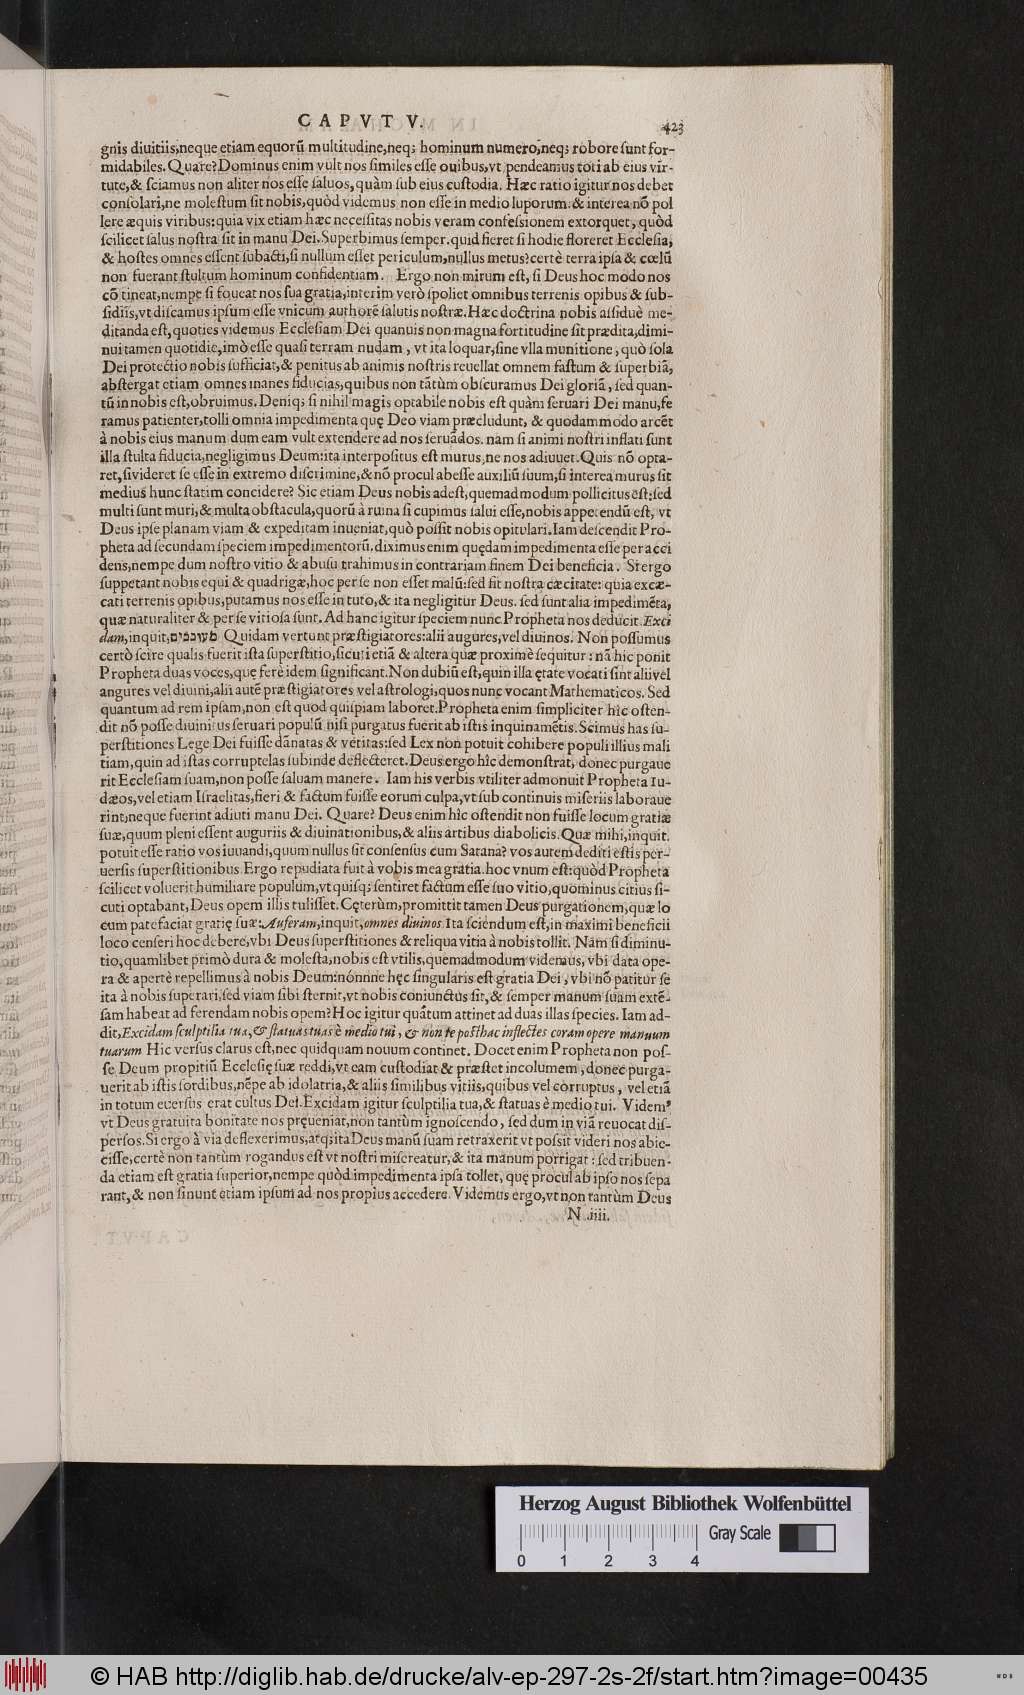 CAPVT V.
423
gnis diuitiis, neque etiam equorũ multitudine, neq; hominum numero, neq; robore sunt for-
midabiles. Quare? Dominus enim vult nos similes esse ouibus, vt pendeamus toti ab eius vir-
tute, & sciamus non aliter nos esse saluos, quàm sub eius custodia. Hæc ratio igitur nos debet
consolari, ne molestum sit nobis, quòd videmus non esse in medio luporum: & interea nõ pol
lere æquis viribus: quia vix etiam hæc necessitas nobis veram confessionem extorquet, quòd
scilicet salus nostra sit in manu Dei. Superbimus semper. quid fieret si hodie floreret Ecclesia,
& hostes omnes essent subacti, si nullum esset periculum, nullus metus? certè terra ipsa & cœlũ
non fuerant stultum hominum confidentiam. Ergo non mirum est, si Deus hoc modo nos
cõtineat, nempe si foueat nos sua gratia, interim verò spoliet omnibus terrenis opibus & sub-
sidiis, vt discamus ipsum esse vnicum authorẽ salutis nostræ. Hæc doctrina nobis assiduè me-
ditanda est, quoties videmus Ecclesiam Dei quanuis non magna fortitudine sit prædita, dimi-
nui tamen quotidie, imò esse quasi terram nudam, vt ita loquar, sine vlla munitione, quò sola
Dei protectio nobis sufficiat, & penitus ab animis nostris reuellat omnem fastum & superbiã,
abstergat etiam omnes inanes fiducias, quibus non tãtùm obscuramus Dei gloriã, sed quan-
tũ in nobis est, obruimus. Deniq; si nihil magis optabile nobis est quàm seruari Dei manu, fe
ramus patienter, tolli omnia impedimenta quę Deo viam præcludunt, & quodammodo arcẽt
à nobis eius manum dum eam vult extendere ad nos seruãdos. nam si animi nostri inflati sunt
illa stulta fiducia, negligimus Deum: ita interpositus est murus, ne nos adiuuet. Quis nõ opta-
ret, si videret se esse in extremo discrimine, & nõ procul abesse auxiliũ suum, si interea murus sit
medius hunc statim concidere? Sic etiam Deus nobis adest, quemadmodum pollicitus est: sed
multi sunt muri, & multa obstacula, quorũ à ruina si cupimus salui esse, nobis appetendũ est, vt
Deus ipse planam viam & expeditam inueniat, quò possit nobis opitulari. Iam descendit Pro-
pheta ad secundam speciem impedimentorũ. diximus enim quędam impedimenta esse per acci
dens, nempe dum nostro vitio & abusu trahimus in contrariam finem Dei beneficia. Si ergo
suppetant nobis equi & quadrigæ, hoc per se non esset malũ: sed fit nostra cæcitate: quia excæ-
cati terrenis opibus, putamus nos esse in tuto, & ita negligitur Deus. sed sunt alia impedimẽta,
quæ naturaliter & per se vitiosa sunt. Ad hanc igitur speciem nunc Propheta nos deducit. Exci
dam, inquit, מעוננים Quidam vertunt præstigiatores: alii augures, vel diuinos. Non possumus
certò scire qualis fuerit ista superstitio, sicuti etiã & altera quæ proximè sequitur: nã hîc ponit
Propheta duas voces, quę ferè idem significant. Non dubiũ est, quin illa ętate vocati sint alii vel
angures vel diuini, alii autẽ præstigiatores vel astrologi, quos nunc vocant Mathematicos. Sed
quantum ad rem ipsam, non est quod quispiam laboret. Propheta enim simpliciter hîc osten-
dit nõ posse diuinitus seruari populũ nisi purgatus fuerit ab istis inquinamẽtis. Scimus has su-
perstitiones Lege Dei fuisse dãnatas & veritas: sed Lex non potuit cohibere populi illius mali
tiam, quin ad istas corruptelas subinde deflecteret. Deus ergo hîc demonstrat, donec purgaue
rit Ecclesiam suam, non posse saluam manere. Iam his verbis vtiliter admonuit Propheta Iu-
dæos, vel etiam Israelitas, fieri & factum fuisse eorum culpa, vt sub continuis miseriis laboraue
rint, neque fuerint adiuti manu Dei. Quare? Deus enim hîc ostendit non fuisse locum gratiæ
suæ, quum pleni essent auguriis & diuinationibus, & aliis artibus diabolicis. Quæ mihi, inquit,
potuit esse ratio vos iuuandi, quum nullus sit consensus cum Satana? vos autem dediti estis per-
uersis superstitionibus. Ergo repudiata fuit à vobis mea gratia. hoc vnum est: quòd Propheta
scilicet voluerit humiliare populum, vt quisq; sentiret factum esse suo vitio, quominus citius si-
cuti optabant, Deus opem illis tulisset. Cęterùm, promittit tamen Deus purgationem, quæ lo
cum patefaciat gratię suæ: Auferam, inquit, omnes diuinos Ita sciendum est, in maximi beneficii
loco censeri hoc debere, vbi Deus superstitiones & reliqua vitia à nobis tollit. Nam si diminu-
tio, quamlibet primò dura & molesta, nobis est vtilis, quemadmodum videmus, vbi data ope-
ra & apertè repellimus à nobis Deum: nónne hęc singularis est gratia Dei, vbi nõ patitur se
ita à nobis superari, sed viam sibi sternit, vt nobis coniunctus sit, & semper manum suam extẽ-
sam habeat ad ferendam nobis opem? Hoc igitur quãtum attinet ad duas illas species. Iam ad-
dit, Excidam sculptilia tua, & statuas tuas è medio tui, & non te posthac inflectes coram opere manuum
tuarum Hic versus clarus est, nec quidquam nouum continet. Docet enim Propheta non pos-
se Deum propitiũ Ecclesię suæ reddi, vt eam custodiat & præstet incolumem, donec purga-
uerit ab istis sordibus, nẽpe ab idolatria, & aliis similibus vitiis, quibus vel corruptus, vel etiã
in totum euersus erat cultus Dei. Excidam igitur sculptilia tua, & statuas è medio tui. Videmꝰ
vt Deus gratuita bonitate nos pręueniat, non tantùm ignoscendo, sed dum in viã reuocat dis-
persos. Si ergo à via deflexerimus, atq; ita Deus manũ suam retraxerit vt possit videri nos abie-
cisse, certè non tantùm rogandus est vt nostri misereatur, & ita manum porrigat: sed tribuen-
da etiam est gratia superior, nempe quòd impedimenta ipsa tollet, quę procul ab ipso nos sepa
rant, & non sinunt etiam ipsum ad nos propius accedere. Videmus ergo, vt non tantùm Deus
N .iiii.
Herzog August Bibliothek Wolfenbüttel
Gray Scale
0 1 2 3 4
© HAB http://diglib.hab.de/drucke/alv-ep-297-2s-2f/start.htm?image=00435